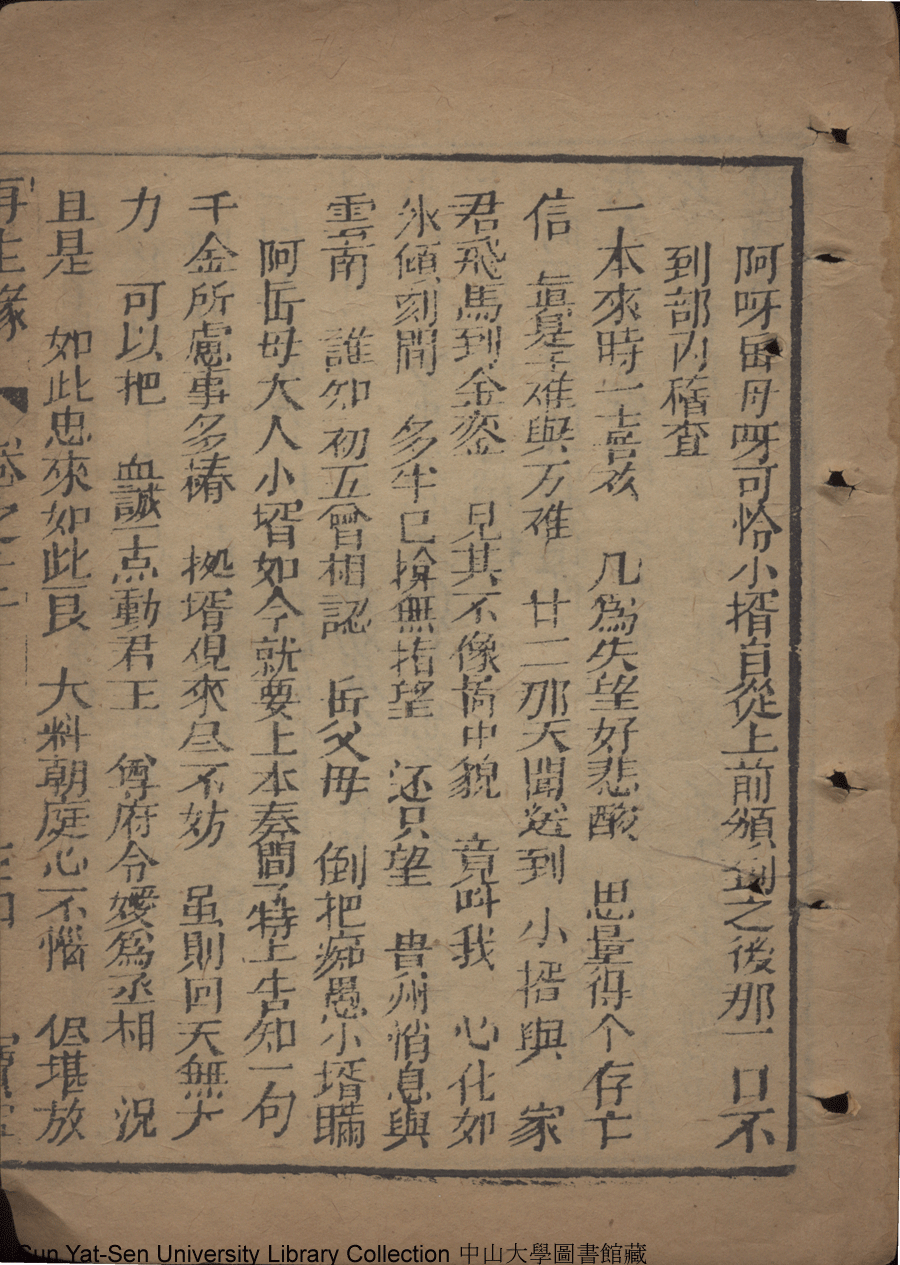 阿呀岳母呀可怜小壻自從上前頒到之後那一日不
到部内稽查
一本來時一喜欢　几為失望好悲酸　思量得个存亡
信　眞是千难與万难　廿二那天聞送到　小壻與　家
君飛馬到金銮　見其不像畵中貌　竟呌我　心化如
氷傾刻間　多半已拚無指望　还只望　貴州悄息與
雲南　誰知初五曾相認　岳父母　倒把痴愚小壻瞞
阿岳母大人小壻如今就要上本奏聞了特上告知一句
千金所慮事多椿　拠壻現來尽不妨　虽則回天無大
力　可以把　血誠一点動君王　尊府令嫒為丞相　況
且是　如此忠來如此良　大料朝庭心不惱　但堪放
再生緣　卷之　寶
Sun Yat-Sen University Library Collection 中山大學圖書館藏